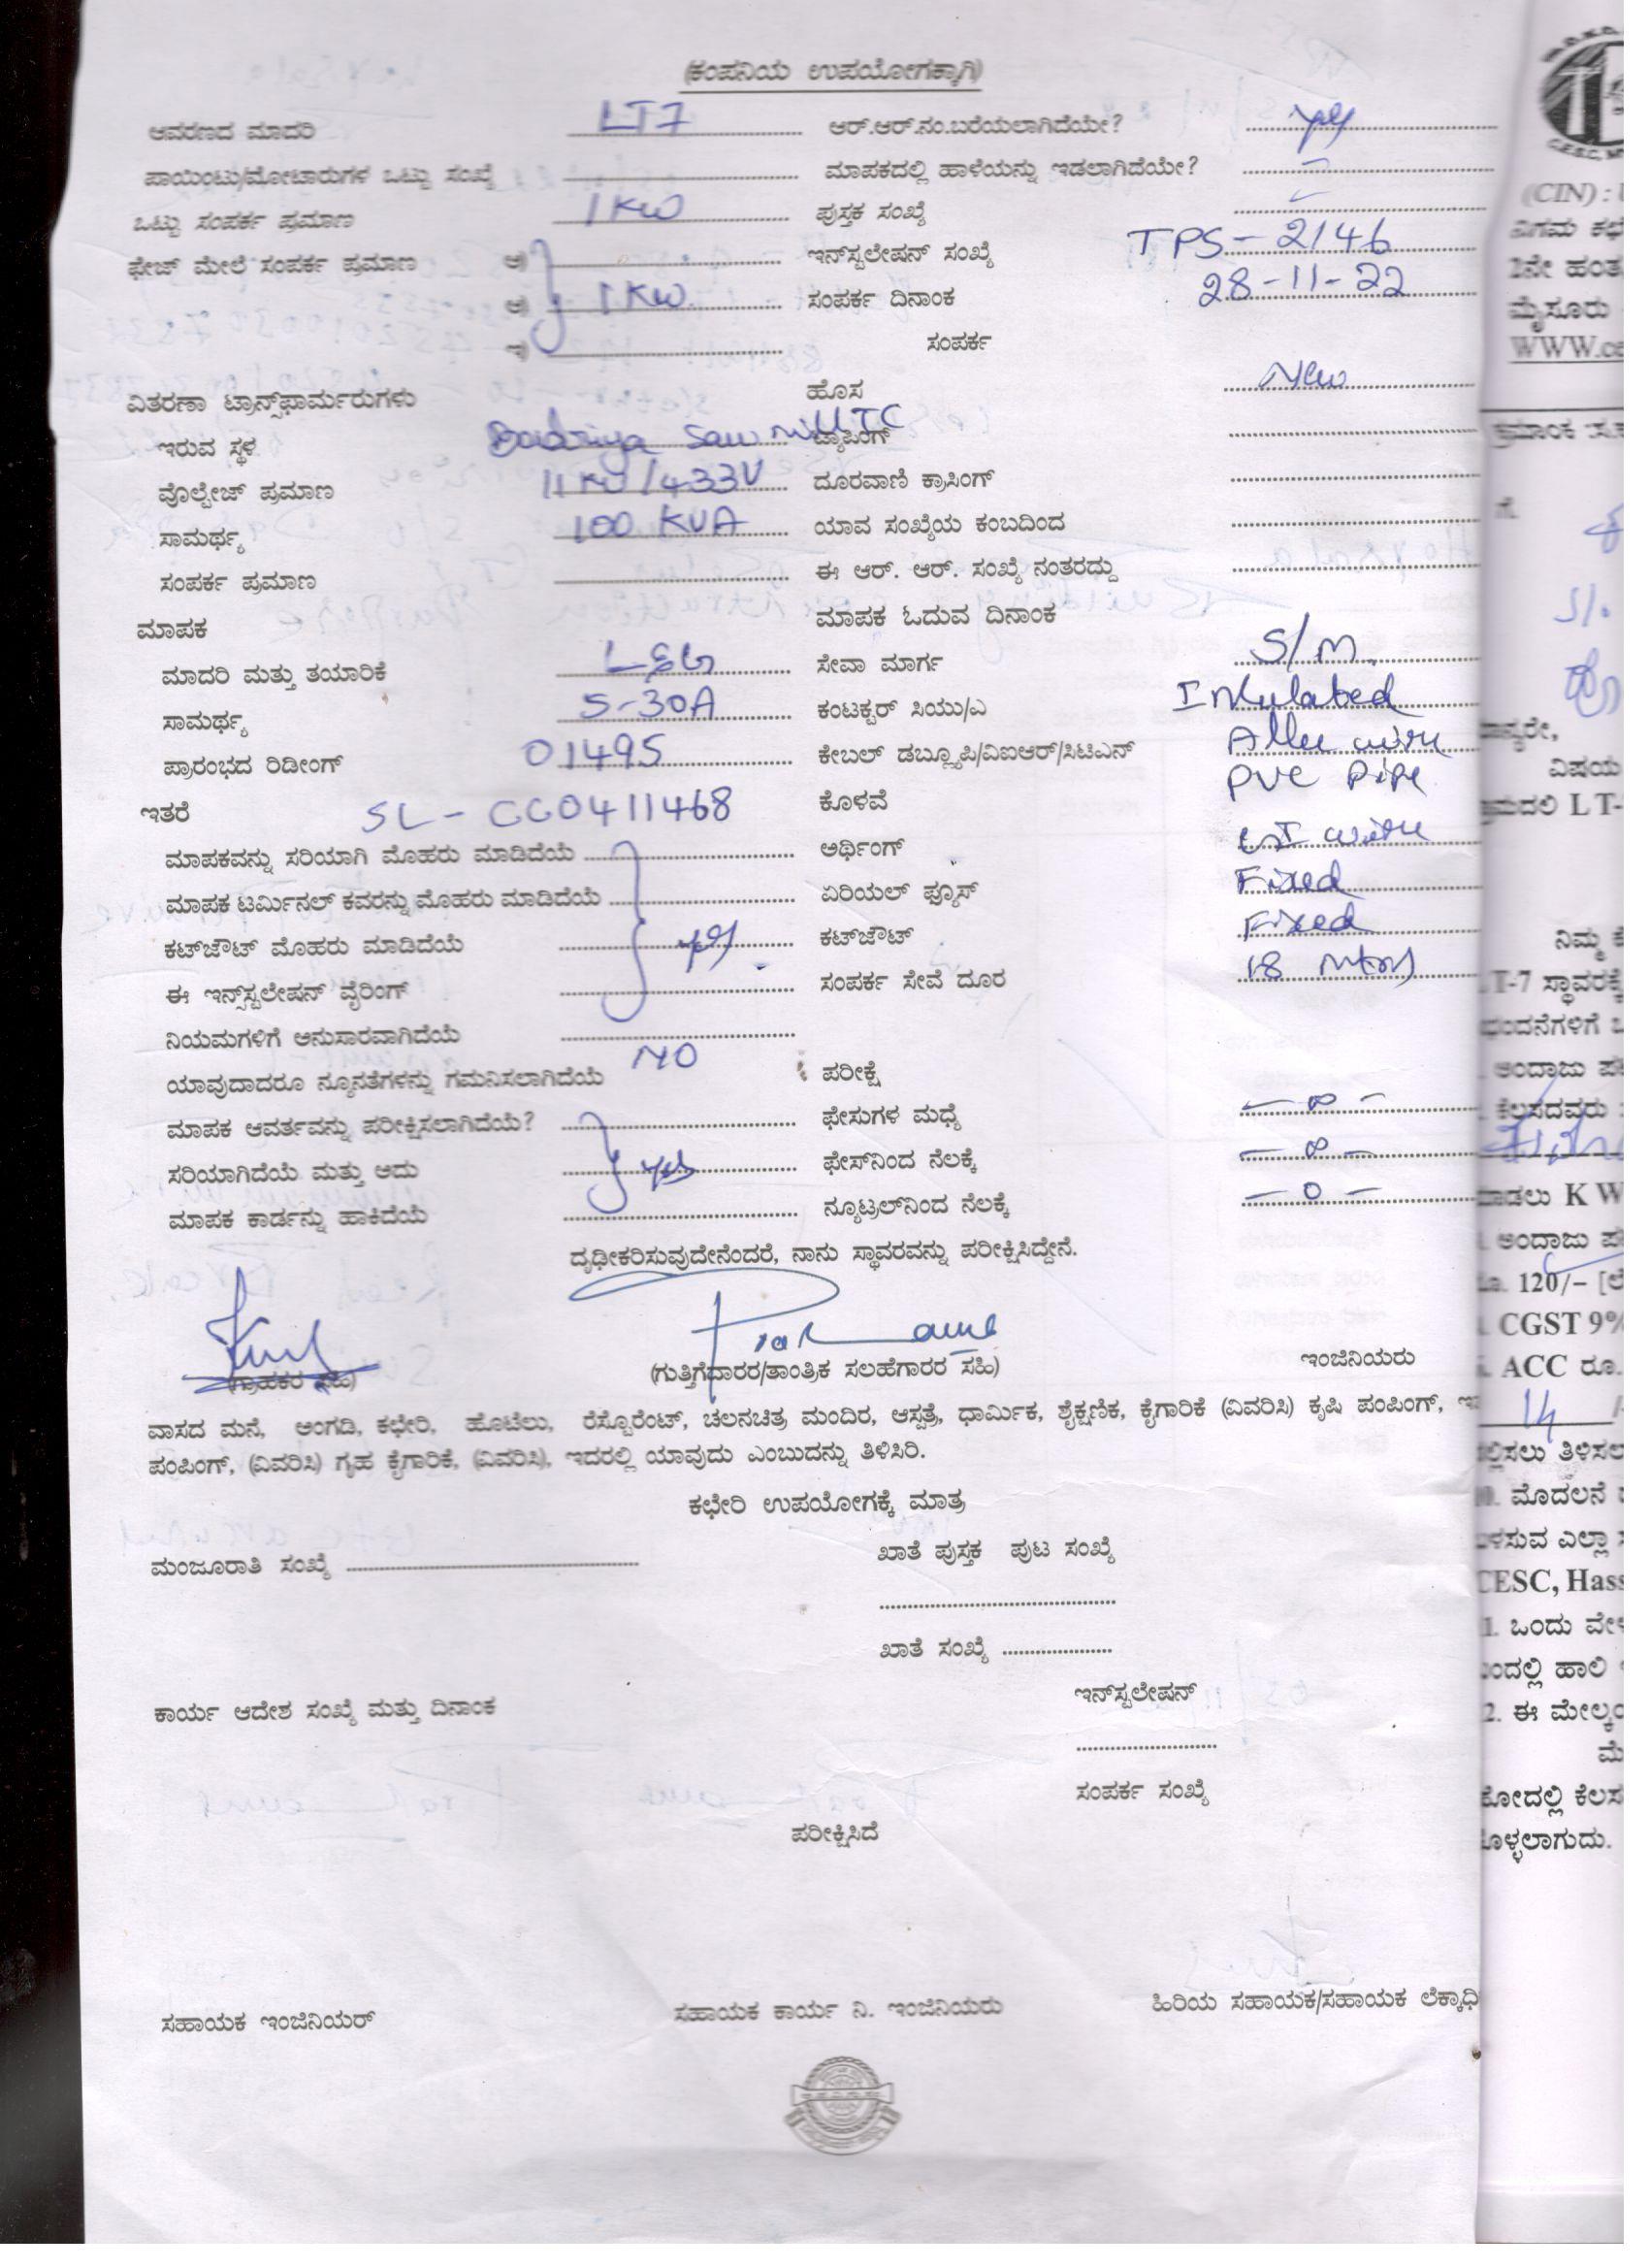 (ಕಂಪನಿಯ ಉಪಯೋಗಕ್ಕಾಗಿ)
ಆವರಣದ ಮಾದರಿ LT7 ಆರ್.ಆರ್.ನಂ.ಬರೆಯಲಾಗಿದೆಯೇ? yes
ಪಾಯಿಂಟು/ಮೋಟಾರುಗಳ ಒಟ್ಟು ಸಂಖ್ಯೆ ಮಾಪಕದಲ್ಲಿ ಹಾಳೆಯನ್ನು ಇಡಲಾಗಿದೆಯೇ?
ಒಟ್ಟು ಸಂಪರ್ಕ ಪ್ರಮಾಣ 1 KW ಪುಸ್ತಕ ಸಂಖ್ಯೆ
ಫೇಜ್ ಮೇಲೆ ಸಂಪರ್ಕ ಪ್ರಮಾಣ ಅ) ಇನ್‌ಸ್ಟಲೇಷನ್ ಸಂಖ್ಯೆ TPS-2146
ಆ) 1 KW ಸಂಪರ್ಕ ದಿನಾಂಕ 28-11-22
ಇ) ಸಂಪರ್ಕ
ಹೊಸ New
ವಿತರಣಾ ಟ್ರಾನ್ಸ್‌ಫಾರ್ಮರುಗಳು
ಇರುವ ಸ್ಥಳ Saw mill TC ಟ್ಯಾಪಿಂಗ್
ವೊಲ್ಟೇಜ್ ಪ್ರಮಾಣ 11 KV/433V ದೂರವಾಣಿ ಕ್ರಾಸಿಂಗ್
ಸಾಮರ್ಥ್ಯ 100 KVA ಯಾವ ಸಂಖ್ಯೆಯ ಕಂಬದಿಂದ
ಸಂಪರ್ಕ ಪ್ರಮಾಣ ಈ ಆರ್. ಆರ್. ಸಂಖ್ಯೆ ನಂತರದ್ದು
ಮಾಪಕ ಮಾಪಕ ಓದುವ ದಿನಾಂಕ
ಮಾದರಿ ಮತ್ತು ತಯಾರಿಕೆ L&G ಸೇವಾ ಮಾರ್ಗ S/M.
ಸಾಮರ್ಥ್ಯ 5-30A ಕಂಟಕ್ಟರ್ ಸಿಯು/ಎ Insulated
ಪ್ರಾರಂಭದ ರಿಡೀಂಗ್ 01495 ಕೇಬಲ್ ಡಬ್ಲ್ಯೂಪಿ/ವಿಐಆರ್/ಸಿಟಿಎನ್ wire
ಇತರೆ SL - CC0411468 ಕೊಳವೆ PVC Pipe
ಮಾಪಕವನ್ನು ಸರಿಯಾಗಿ ಮೊಹರು ಮಾಡಿದೆಯೆ ಅರ್ಥಿಂಗ್ GI wire
ಮಾಪಕ ಟರ್ಮಿನಲ್ ಕವರನ್ನು ಮೊಹರು ಮಾಡಿದೆಯೆ ಏರಿಯಲ್ ಫ್ಯೂಸ್ Fixed
ಕಟ್‌ಜೌಟ್ ಮೊಹರು ಮಾಡಿದೆಯೆ yes ಕಟ್‌ಜೌಟ್ Fixed
ಈ ಇನ್‌ಸ್ಟಲೇಷನ್ ವೈರಿಂಗ್ ಸಂಪರ್ಕ ಸೇವೆ ದೂರ 18 mtrs
ನಿಯಮಗಳಿಗೆ ಅನುಸಾರವಾಗಿದೆಯೆ
ಯಾವುದಾದರೂ ನ್ಯೂನತೆಗಳನ್ನು ಗಮನಿಸಲಾಗಿದೆಯೆ NO ಪರೀಕ್ಷೆ
ಮಾಪಕ ಆವರ್ತವನ್ನು ಪರೀಕ್ಷಿಸಲಾಗಿದೆಯೆ? ಫೇಸುಗಳ ಮಧ್ಯೆ — ∞ —
ಸರಿಯಾಗಿದೆಯೆ ಮತ್ತು ಅದು yes ಫೇಸ್‌ನಿಂದ ನೆಲಕ್ಕೆ — ∞ —
ಮಾಪಕ ಕಾರ್ಡನ್ನು ಹಾಕಿದೆಯೆ ನ್ಯೂಟ್ರಲ್‌ನಿಂದ ನೆಲಕ್ಕೆ — 0 —
ದೃಢೀಕರಿಸುವುದೇನೆಂದರೆ, ನಾನು ಸ್ಥಾವರವನ್ನು ಪರೀಕ್ಷಿಸಿದ್ದೇನೆ.
(ಗ್ರಾಹಕರ ಸಹಿ) (ಗುತ್ತಿಗೆದಾರರ/ತಾಂತ್ರಿಕ ಸಲಹೆಗಾರರ ಸಹಿ) ಇಂಜಿನಿಯರು
ವಾಸದ ಮನೆ, ಅಂಗಡಿ, ಕಛೇರಿ, ಹೊಟೆಲು, ರೆಸ್ಟೊರೆಂಟ್, ಚಲನಚಿತ್ರ ಮಂದಿರ, ಆಸ್ಪತ್ರೆ, ಧಾರ್ಮಿಕ, ಶೈಕ್ಷಣಿಕ, ಕೈಗಾರಿಕೆ (ವಿವರಿಸಿ) ಕೃಷಿ ಪಂಪಿಂಗ್,
ಪಂಪಿಂಗ್, (ವಿವರಿಸಿ) ಗೃಹ ಕೈಗಾರಿಕೆ, (ವಿವರಿಸಿ), ಇದರಲ್ಲಿ ಯಾವುದು ಎಂಬುದನ್ನು ತಿಳಿಸಿರಿ.
ಕಛೇರಿ ಉಪಯೋಗಕ್ಕೆ ಮಾತ್ರ
ಮಂಜೂರಾತಿ ಸಂಖ್ಯೆ ಖಾತೆ ಪುಸ್ತಕ ಪುಟ ಸಂಖ್ಯೆ
ಖಾತೆ ಸಂಖ್ಯೆ
ಕಾರ್ಯ ಆದೇಶ ಸಂಖ್ಯೆ ಮತ್ತು ದಿನಾಂಕ ಇನ್‌ಸ್ಟಲೇಷನ್
ಸಂಪರ್ಕ ಸಂಖ್ಯೆ
ಪರೀಕ್ಷಿಸಿದೆ
ಸಹಾಯಕ ಇಂಜಿನಿಯರ್ ಸಹಾಯಕ ಕಾರ್ಯ ನಿ. ಇಂಜಿನಿಯರು ಹಿರಿಯ ಸಹಾಯಕ/ಸಹಾಯಕ
(CIN) :
ನಿಗಮ
2ನೇ
ಮೈಸೂರು
ವಿಷಯ
LT-
ನಿಮ್ಮ
ಅಂದಾಜು
ಕೆಲಸದವರು
K W
ಅಂದಾಜು
120/-
CGST 9%
ACC ರೂ.
14
ತಿಳಿಸಲ
ಮೊದಲನೆ
ಎಲ್ಲಾ
CESC, Hass
ಒಂದು
ಹಾಲಿ
2. ಈ